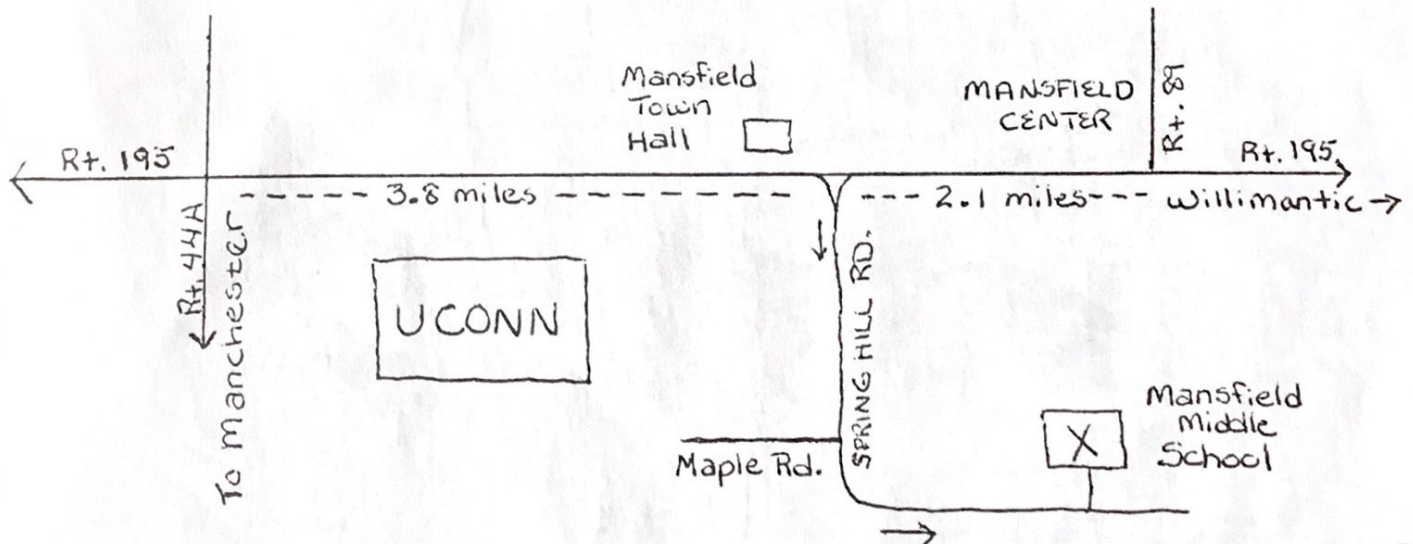 Mansfield
Town
Hall
MANSFIELD
CENTER
Rt. 89
Rt. 195
Rt. 195
3.8 miles
2.1 miles
Willimantic
Rt. 44A
To Manchester
UCONN
SPRING HILL RD.
Maple Rd.
X
Mansfield
Middle
School